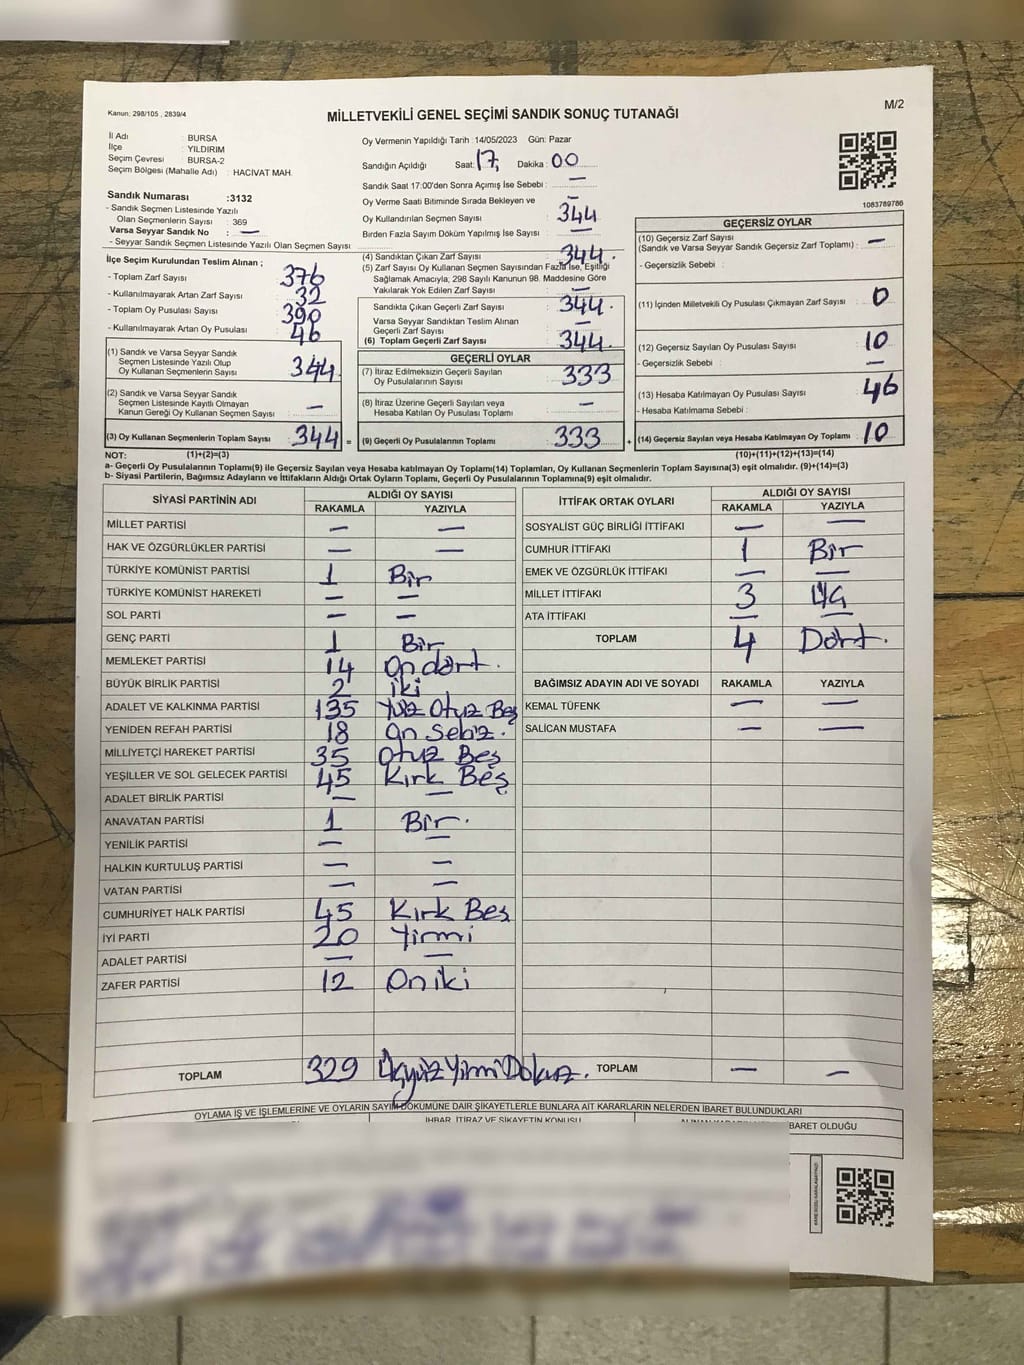 Kanun: 298/105 , 2839/4
M/2
MİLLETVEKİLİ GENEL SEÇİMİ SANDIK SONUÇ TUTANAĞI
İl Adı : BURSA
İlçe : YILDIRIM
Seçim Çevresi : BURSA-2
Seçim Bölgesi (Mahalle Adı) : HACİVAT MAH.
Sandık Numarası :3132
- Sandık Seçmen Listesinde Yazılı
Olan Seçmenlerin Sayısı : 369
Varsa Seyyar Sandık No : —
- Seyyar Sandık Seçmen Listesinde Yazılı Olan Seçmen Sayısı
Oy Vermenin Yapıldığı Tarih : 14/05/2023 Gün: Pazar
Sandığın Açıldığı Saat: 17, Dakika : 00
Sandık Saat 17:00'den Sonra Açımış İse Sebebi : —
Oy Verme Saati Bitiminde Sırada Bekleyen ve : —
Oy Kullandırılan Seçmen Sayısı : 344
Birden Fazla Sayım Döküm Yapılmış İse Sayısı : —
1083789786
İlçe Seçim Kurulundan Teslim Alınan ;
- Toplam Zarf Sayısı : 376
- Kullanılmayarak Artan Zarf Sayısı : 32
- Toplam Oy Pusulası Sayısı : 390
- Kullanılmayarak Artan Oy Pusulası : 46
(1) Sandık ve Varsa Seyyar Sandık
Seçmen Listesinde Yazılı Olup
Oy Kullanan Seçmenlerin Sayısı : 344
(2) Sandık ve Varsa Seyyar Sandık
Seçmen Listesinde Kayıtlı Olmayan
Kanun Gereği Oy Kullanan Seçmen Sayısı : —
(3) Oy Kullanan Seçmenlerin Toplam Sayısı : 344 =
(4) Sandıktan Çıkan Zarf Sayısı : 344
(5) Zarf Sayısı Oy Kullanan Seçmen Sayısından Fazla İse, Eşitliği
Sağlamak Amacıyla, 298 Sayılı Kanunun 98. Maddesine Göre
Yakılarak Yok Edilen Zarf Sayısı : —
Sandıkta Çıkan Geçerli Zarf Sayısı : 344.
Varsa Seyyar Sandıktan Teslim Alınan
Geçerli Zarf Sayısı : —
(6) Toplam Geçerli Zarf Sayısı : 344.
GEÇERLİ OYLAR
(7) İtiraz Edilmeksizin Geçerli Sayılan
Oy Pusulalarının Sayısı : 333
(8) İtiraz Üzerine Geçerli Sayılan veya
Hesaba Katılan Oy Pusulası Toplamı : —
(9) Geçerli Oy Pusulalarının Toplamı : 333 +
GEÇERSİZ OYLAR
(10) Geçersiz Zarf Sayısı
(Sandık ve Varsa Seyyar Sandık Geçersiz Zarf Toplamı) : —
- Geçersizlik Sebebi :
(11) İçinden Milletvekili Oy Pusulası Çıkmayan Zarf Sayısı : 0
(12) Geçersiz Sayılan Oy Pusulası Sayısı : 10
- Geçersizlik Sebebi : —
(13) Hesaba Katılmayan Oy Pusulası Sayısı : 46
- Hesaba Katılmama Sebebi :
(14) Geçersiz Sayılan veya Hesaba Katılmayan Oy Pusulası Toplamı : 10
NOT: (1)+(2)=(3) (10)+(11)+(12)+(13)=(14)
a- Geçerli Oy Pusulalarının Toplamı(9) ile Geçersiz Sayılan veya Hesaba katılmayan Oy Toplamı(14) Toplamları, Oy Kullanan Seçmenlerin Toplam Sayısına(3) eşit olmalıdır. (9)+(14)=(3)
b- Siyasi Partilerin, Bağımsız Adayların ve İttifakların Aldığı Ortak Oyların Toplamı, Geçerli Oy Pusulalarının Toplamına(9) eşit olmalıdır.
SİYASİ PARTİNİN ADI ALDIĞI OY SAYISI
RAKAMLA YAZIYLA
MİLLET PARTİSİ — —
HAK VE ÖZGÜRLÜKLER PARTİSİ — —
TÜRKİYE KOMÜNİST PARTİSİ 1 Bir
TÜRKİYE KOMÜNİST HAREKETİ — —
SOL PARTİ — —
GENÇ PARTİ 1 Bir
MEMLEKET PARTİSİ 14 On dört.
BÜYÜK BİRLİK PARTİSİ 2 iki
ADALET VE KALKINMA PARTİSİ 135 Yüz Otuz Beş
YENİDEN REFAH PARTİSİ 18 On Sekiz.
MİLLİYETÇİ HAREKET PARTİSİ 35 Otuz Beş
YEŞİLLER VE SOL GELECEK PARTİSİ 45 Kırk Beş
ADALET BİRLİK PARTİSİ — —
ANAVATAN PARTİSİ 1 Bir.
YENİLİK PARTİSİ — —
HALKIN KURTULUŞ PARTİSİ — —
VATAN PARTİSİ — —
CUMHURİYET HALK PARTİSİ 45 Kırk Beş
İYİ PARTİ 20 Yirmi
ADALET PARTİSİ — —
ZAFER PARTİSİ 12 On iki
TOPLAM 329 Üçyüz Yirmi Dokuz.
İTTİFAK ORTAK OYLARI ALDIĞI OY SAYISI
RAKAMLA YAZIYLA
SOSYALİST GÜÇ BİRLİĞİ İTTİFAKI — —
CUMHUR İTTİFAKI 1 Bir
EMEK VE ÖZGÜRLÜK İTTİFAKI — —
MİLLET İTTİFAKI 3 Üç
ATA İTTİFAKI — —
TOPLAM 4 Dört.
BAĞIMSIZ ADAYIN ADI VE SOYADI RAKAMLA YAZIYLA
KEMAL TÜFENK — —
SALİCAN MUSTAFA — —
TOPLAM — —
OYLAMA İŞ VE İŞLEMLERİNE VE OYLARIN SAYIM DÖKÜMÜNE DAİR ŞİKAYETLERLE BUNLARA AİT KARARLARIN NELERDEN İBARET BULUNDUKLARI
İHBAR, İTİRAZ VE ŞİKAYETİN KONUSU
BARET OLDUĞU